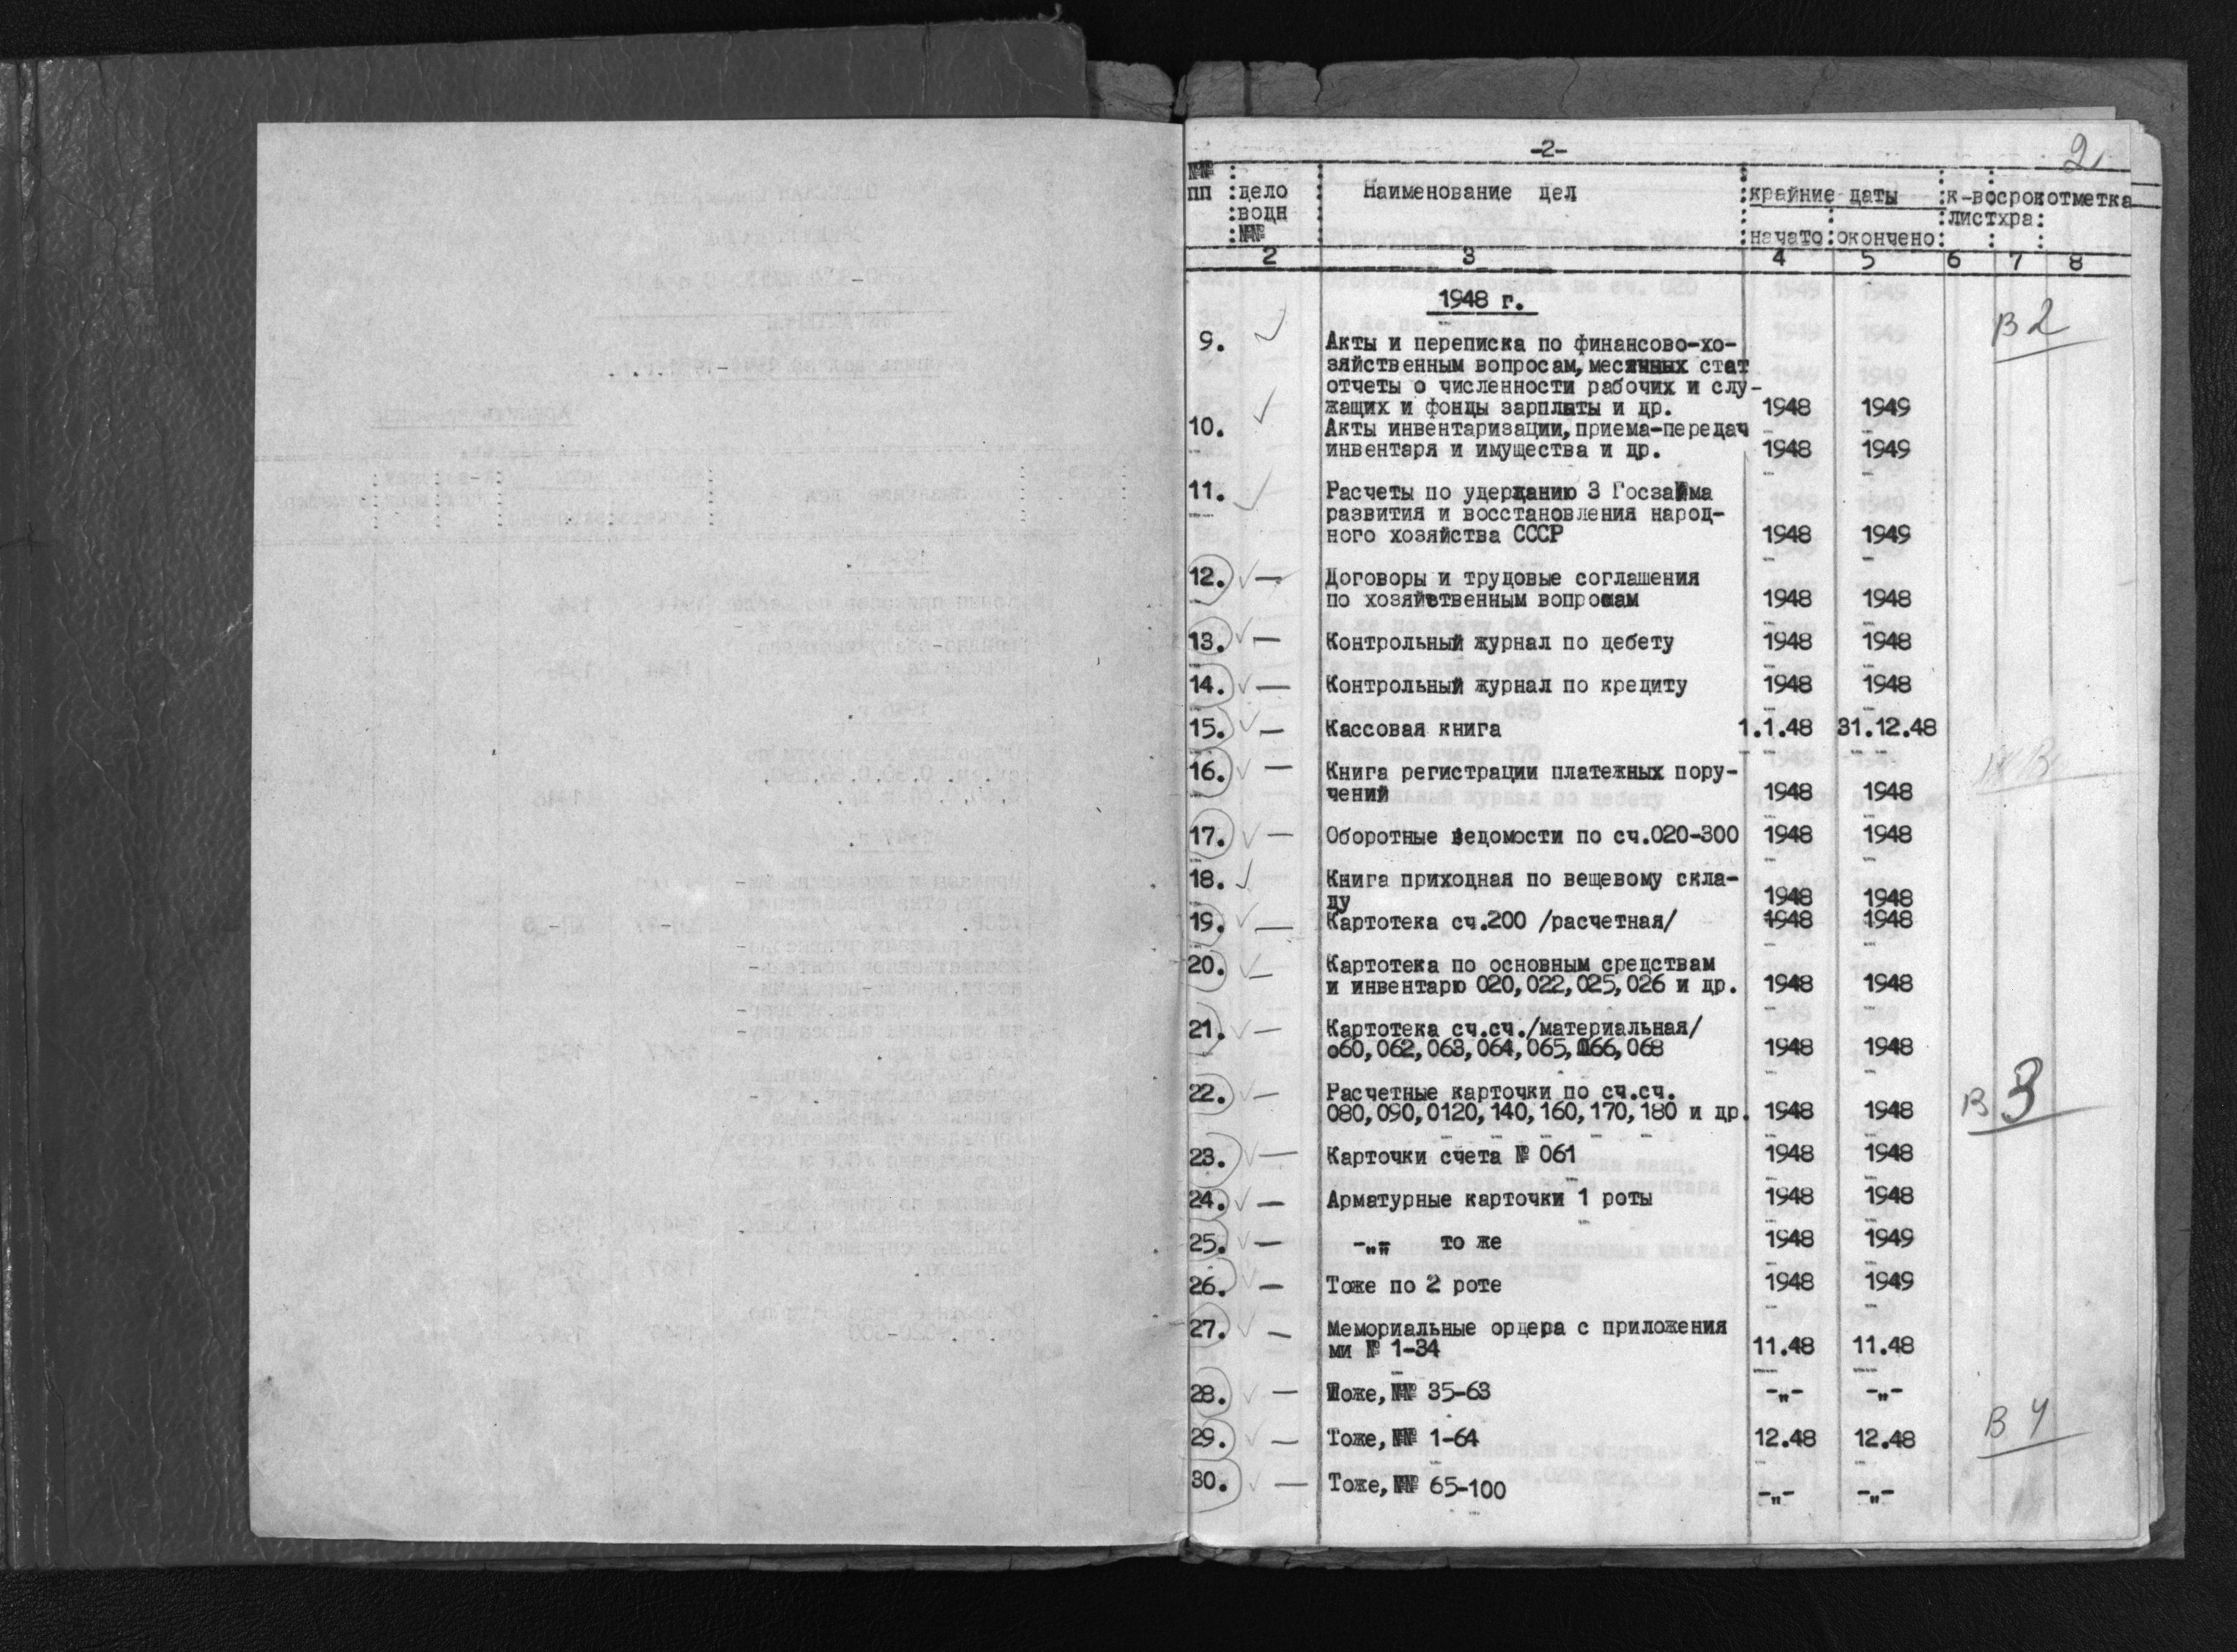 -2-
2
№№
пп дело Наименование дел крайние даты к-во срок отметка
водн лист хра
№№ начато окончено
2 3 4 5 6 7 8
1948 г.
В 2
9. Акты и переписка по финансово-хо-
зяйственным вопросам, месячных стат
отчеты о численности рабочих и слу-
жащих и фонды зарплаты и др. 1948 1949
10. Акты инвентаризации, приема-передач
инвентаря и имущества и др. 1948 1949
11. Расчеты по удержанию 3 Госзайма
развития и восстановления народ-
ного хозяйства СССР 1948 1949
12. — Договоры и трудовые соглашения
по хозяйственным вопросам 1948 1948
13. — Контрольный журнал по дебету 1948 1948
14. — Контрольный журнал по кредиту 1948 1948
15. — Кассовая книга 1.1.48 31.12.48
16. — Книга регистрации платежных пору-
чений 1948 1948
17. — Оборотные ведомости по сч.020-300 1948 1948
18. Книга приходная по вещевому скла-
ду 1948 1948
19. — Картотека сч.200 /расчетная/ 1948 1948
20. — Картотека по основным средствам
и инвентарю 020,022,025,026 и др. 1948 1948
21. — Картотека сч.сч./материальная/
о60,062,063,064,065,066,068 1948 1948
22. — Расчетные карточки по сч.сч.
080,090,0120,140,160,170,180 и др. 1948 1948
В 3
23. — Карточки счета № 061 1948 1948
24. — Арматурные карточки 1 роты 1948 1948
25. — -„- то же 1948 1949
26. — Тоже по 2 роте 1948 1949
27. — Мемориальные ордера с приложения
ми № 1-34 11.48 11.48
28. — Тоже, №№ 35-63 -„- -„-
29. — Тоже, №№ 1-64 12.48 12.48
В 4
30. — Тоже, №№ 65-100 -„- -„-